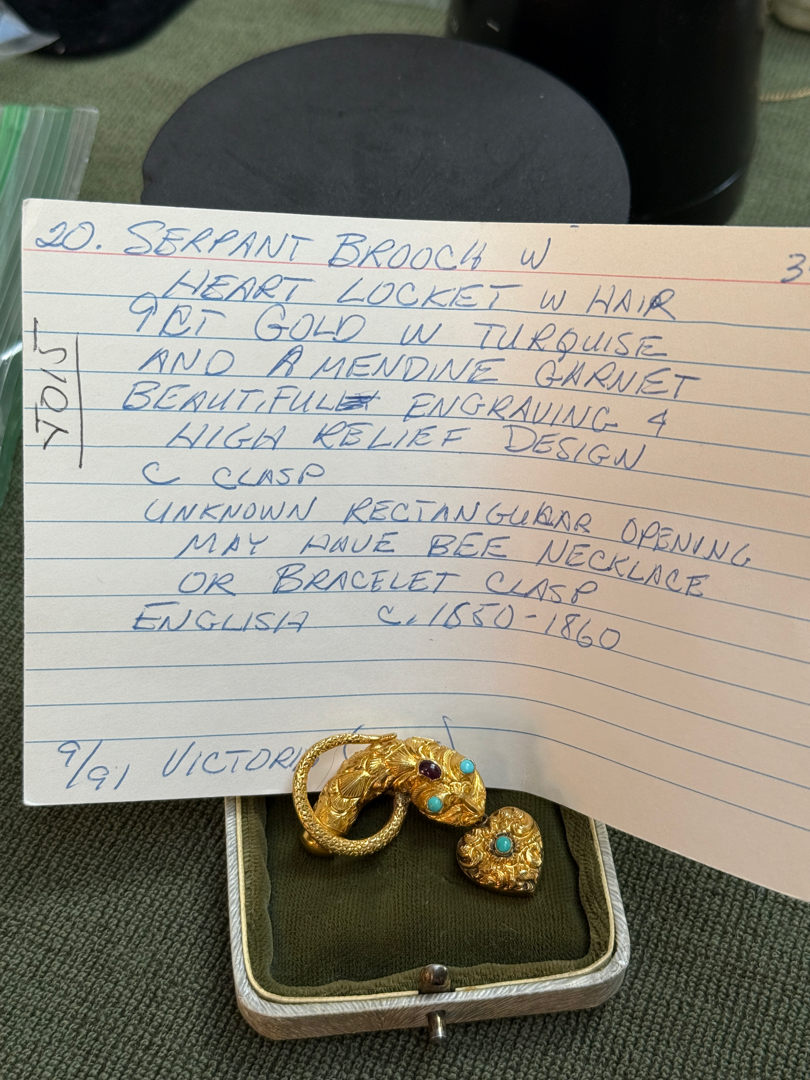 20. SERPANT BROOCH W 3
HEART LOCKET W HAIR
9CT GOLD W TURQUISE
AND AMENDINE GARNET
BEAUTIFUL ENGRAVING &
HIGH RELIEF DESIGN
C CLASP
UNKNOWN RECTANGULAR OPENING
MAY HAVE BEE NECKLACE
OR BRACELET CLASP
ENGLISH C. 1850-1860
9/91 VICTORI